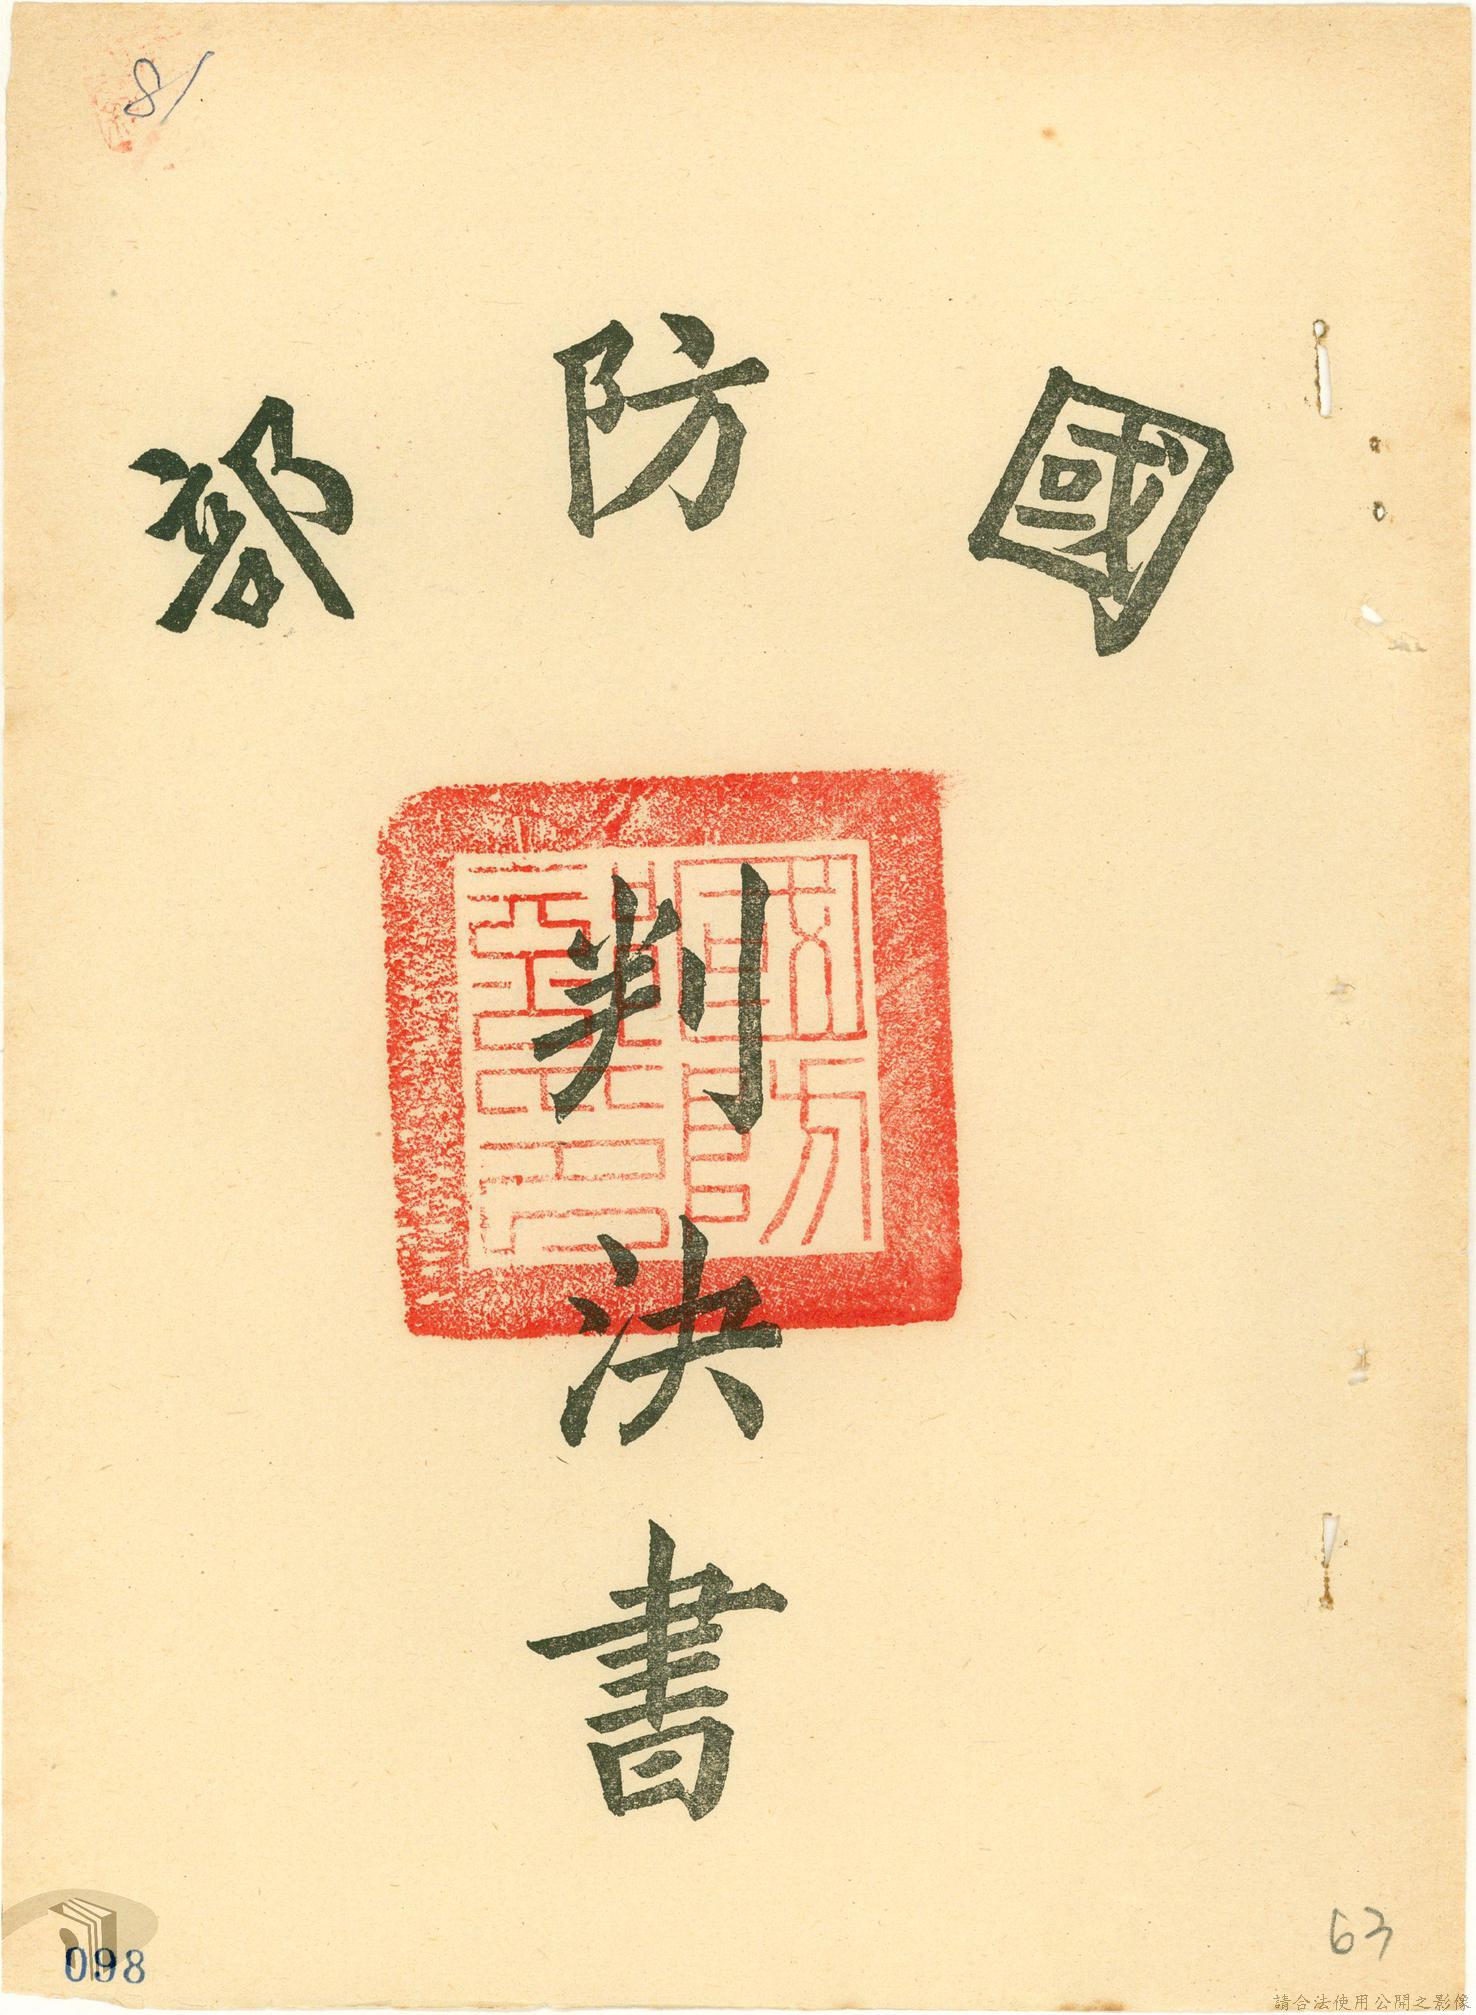 81
國防部
判
決
書
098
63
請合法使用公開之影像